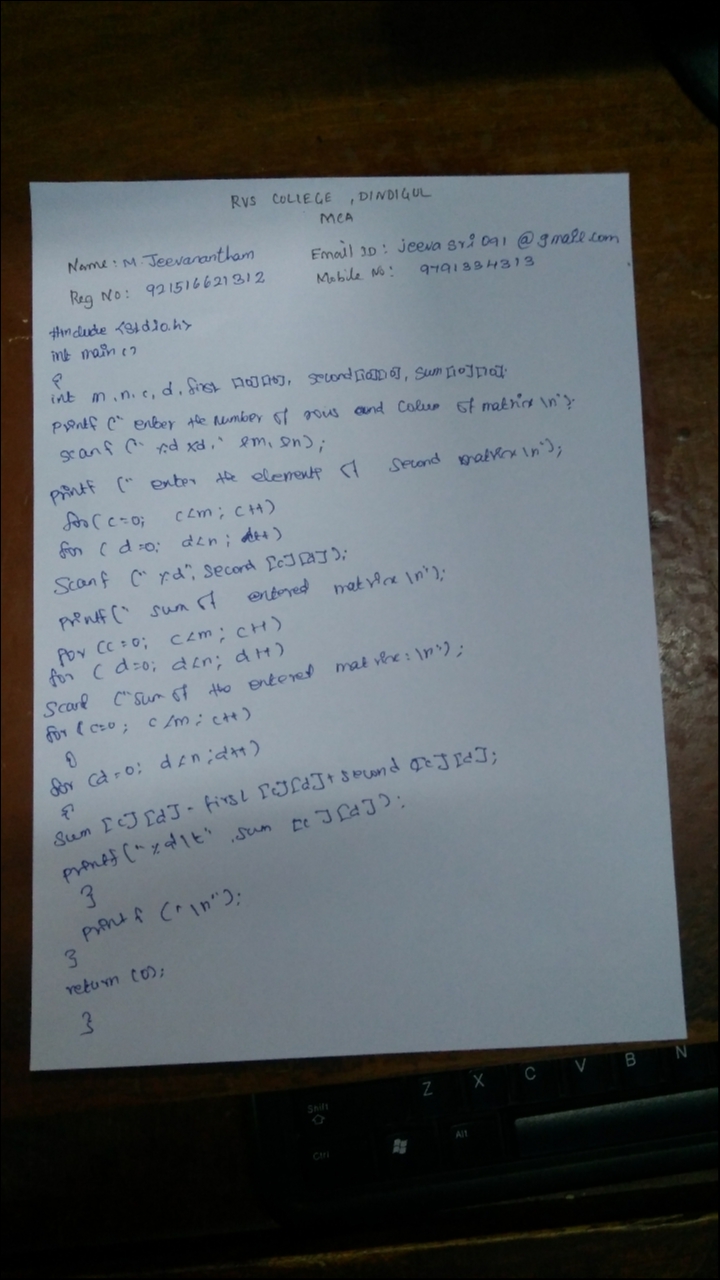 RVS COLLEGE , DINDIGUL
MCA
Name : M. Jeevanantham
Email ID : jeeva sri 091 @ gmail.com
Reg No : 921516621312
Mobile No : 9791334313
#include <stdio.h>
int main ()
{
int m, n, c, d, first [10][10], second [10][10], sum [10][10].
printf (" enter the number of rows and colum of matrix \n");
scanf (" %d %d," &m, &n);
printf (" enter the elements of second matrix \n");
for ( c=0; c<m; c++)
for ( d=0; d<n; d++)
scanf (" %d", second [c][d]);
printf (" sum of entered matrix \n");
for (c=0; c<m; c++)
for ( d=0; d<n; d++)
scanf ("sum of the entered matrix: \n");
for (c=0; c<m; c++)
{
for (d=0; d<n; d++)
{
sum [c][d] = first [c][d] + second [c][d];
printf (" %d\t" , sum [c][d]);
}
printf (" \n");
}
return (0);
}
Z X C V B N
Shift
Ctrl Alt